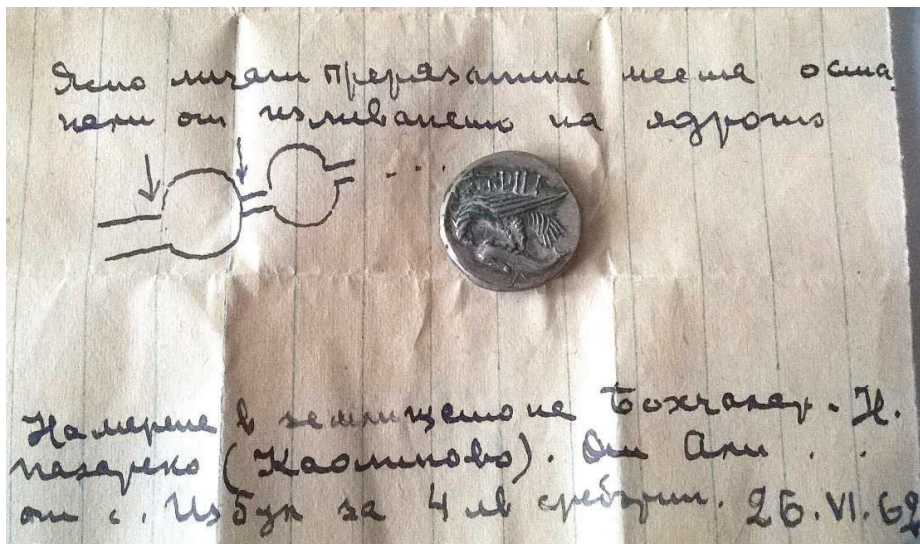 Ясно личат прерязаните места оста
нали от изливането на ядрото
Намерена в землището на Бохчалар. Н.
пазарско (Каолиново). От Али . .
от с. Избул за 4 лв сребърни. 26.VI.62